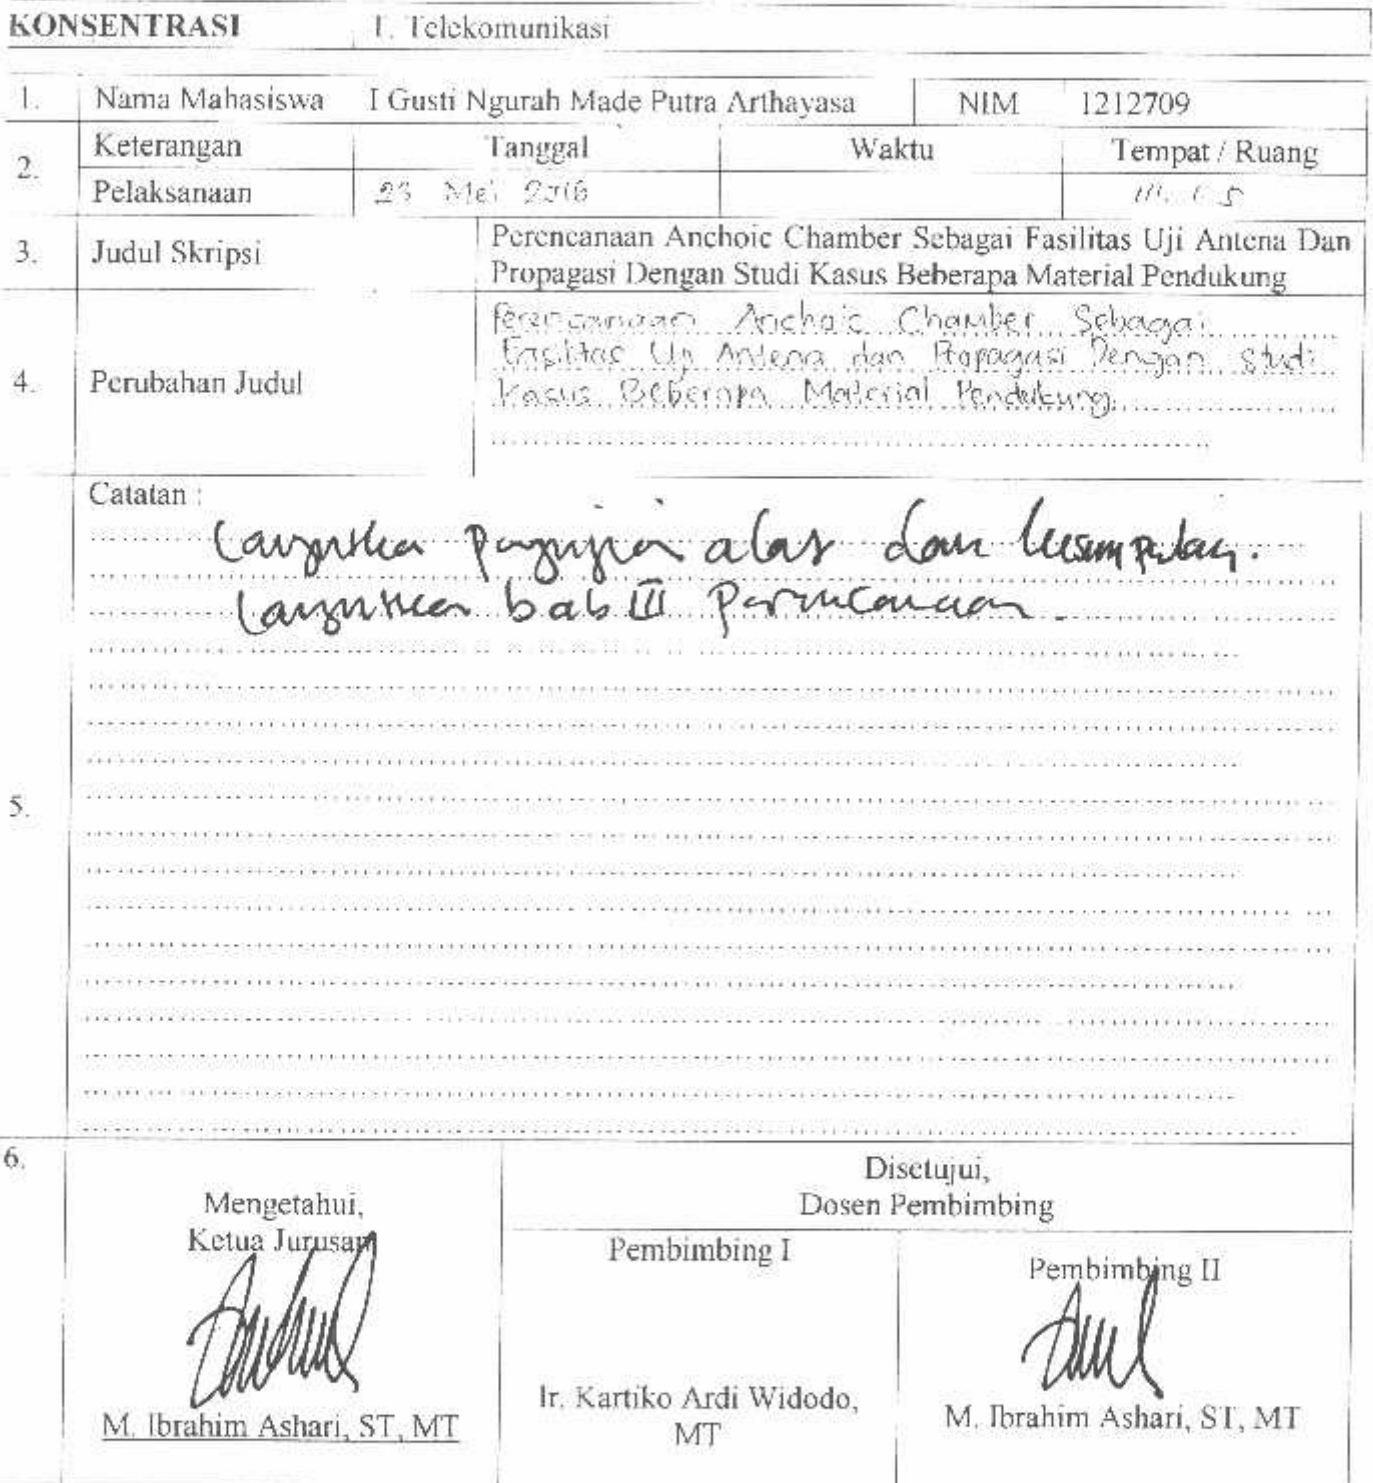 KONSENTRASI T. Telekomunikasi
1. Nama Mahasiswa I Gusti Ngurah Made Putra Arthayasa NIM 1212709
2. Keterangan Tanggal Waktu Tempat / Ruang
Pelaksanaan 23 Mei 2016
3. Judul Skripsi Perencanaan Anchoic Chamber Sebagai Fasilitas Uji Antena Dan
Propagasi Dengan Studi Kasus Beberapa Material Pendukung
4. Perubahan Judul Perencanaan Anchoic Chamber Sebagai
Fasilitas Uji Antena dan Propagasi Dengan Studi
Kasus Beberapa Material Pendukung
5. Catatan :
alat dan kesimpulan.
bab III Perencanaan
6. Mengetahui,
Ketua Jurusan
M. Ibrahim Ashari, ST, MT
Disetujui,
Dosen Pembimbing
Pembimbing I
Ir. Kartiko Ardi Widodo,
MT
Pembimbing II
M. Ibrahim Ashari, ST, MT